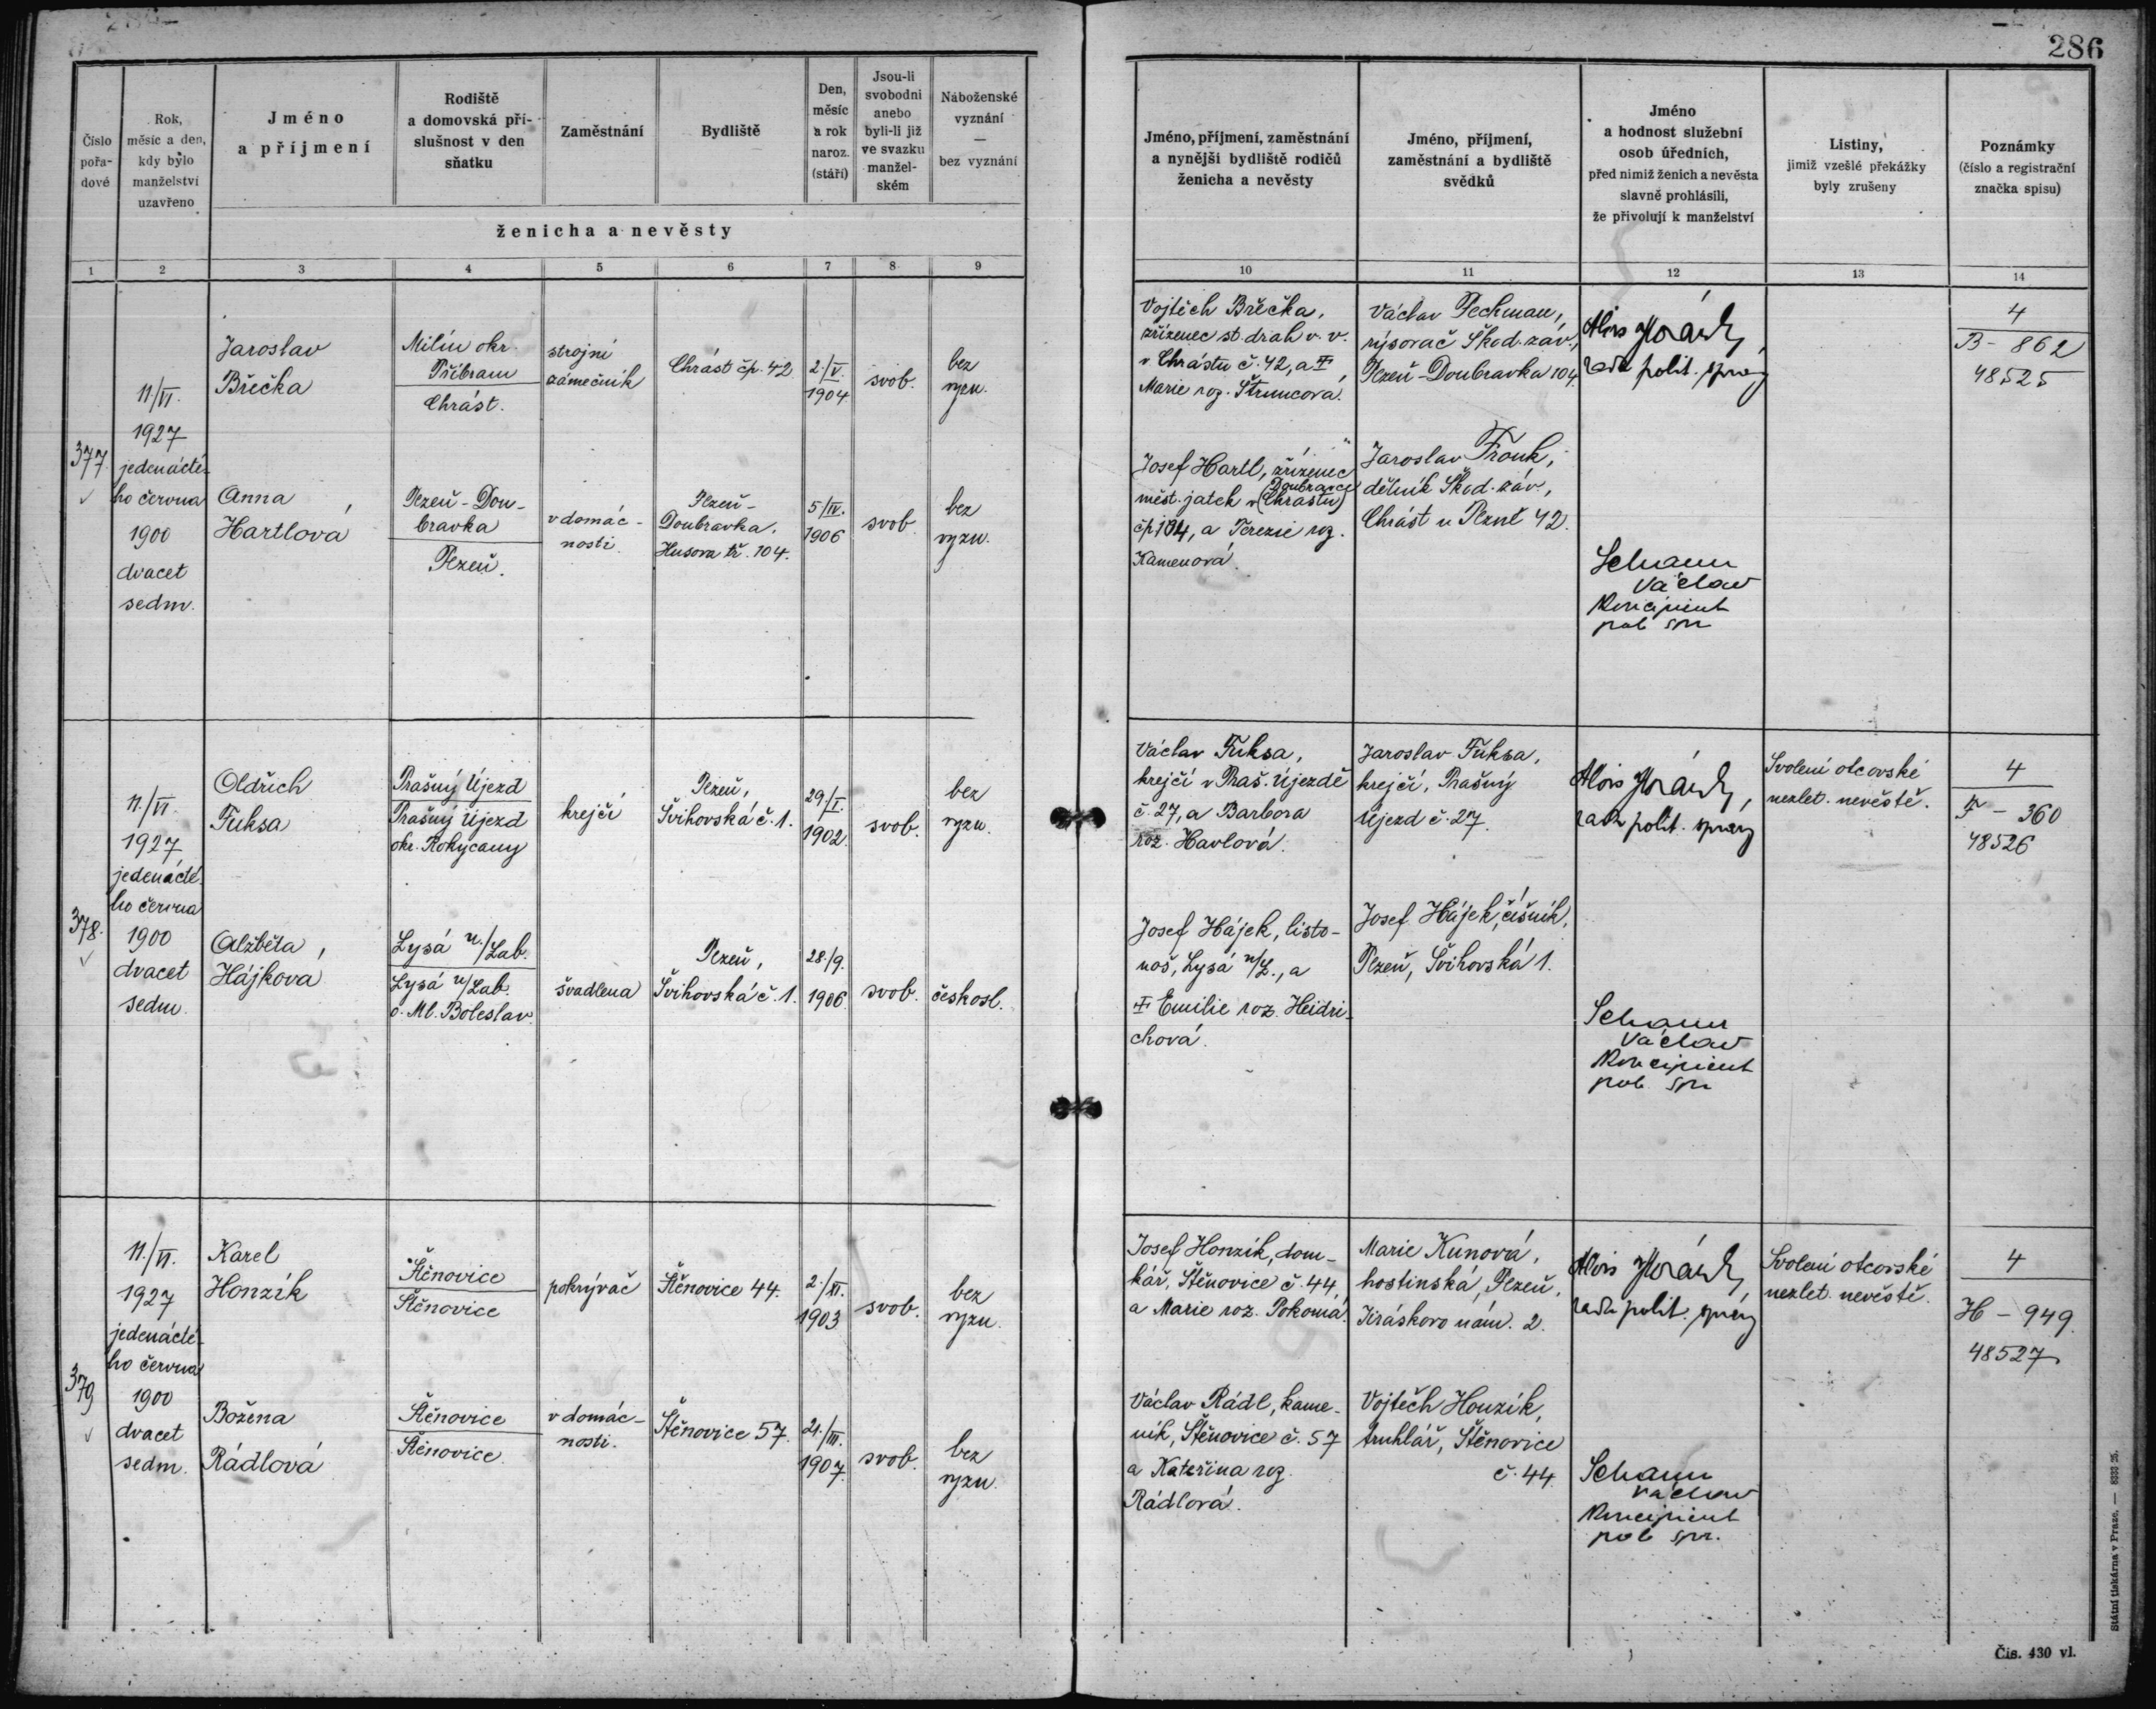 286
Číslo
pořa-
dové
Rok,
měsíc a den,
kdy bylo
manželství
uzavřeno
Jméno
a příjmení
Rodiště
a domovská pří-
slušnost v den
sňatku
Zaměstnání
Bydliště
Den,
měsíc
a rok
naroz.
(stáří)
Jsou-li
svobodni
anebo
byli-li již
ve svazku
manžel-
ském
Náboženské
vyznání
—
bez vyznání
ženicha a nevěsty
Jméno, příjmení, zaměstnání
a nynější bydliště rodičů
ženicha a nevěsty
Jméno, příjmení,
zaměstnání a bydliště
svědků
Jméno
a hodnost služební
osob úředních,
před nimiž ženich a nevěsta
slavně prohlásili,
že přivolují k manželství
Listiny,
jimiž vzešlé překážky
byly zrušeny
Poznámky
(číslo a registrační
značka spisu)
1 2 3 4 5 6 7 8 9 10 11 12 13 14
377.
11/VI.
1927
jedenácté-
ho června
1900
dvacet
sedm.
Jaroslav
Břečka
Milín okr.
Příbram
Chrást.
strojní
zámečník
Chrást čp. 42
2./V.
1904
svob.
bez
vyzn.
Vojtěch Břečka,
zřízenec st. drah v. v.
v Chrástu č. 42, a
Marie roz. Štruncová.
Václav Pechman,
rýsovač Škod. záv.,
Plzeň-Doubravka 104.
Alois
rada polit. správy
4
B - 862
48525
Anna
Hartlová
Plzeň-Dou-
bravka
Plzeň.
v domác-
nosti.
Plzeň-
Doubravka,
Husova tř. 104.
5/IV.
1906
svob.
bez
vyzn.
Josef Hartl, zřízenec
Doubravce
měst. jatek v (Chrástu)
čp 104, a Terezie roz.
Kamenová.
Jaroslav Fronk,
dělník Škod. záv.,
Chrást u Plzně 42.
Schann
Václav
Koncipient
pol. spr
378.
11./VI.
1927
jedenácté-
ho června
1900
dvacet
sedm.
Oldřich
Fuksa
Prašný Újezd
Prašný Újezd
okr. Rokycany
krejčí
Plzeň,
Švihovská č. 1.
29/I.
1902.
svob.
bez
vyzn.
Václav Fuksa,
krejčí v Praš. Újezdě
č. 27, a Barbora
roz. Havlová.
Jaroslav Fuksa,
krejčí, Prašný
Újezd č. 27.
Alois
rada polit. správy
Svolení otcovské
nezlet. nevěstě.
4
F - 360
48526
Alžběta
Hájkova
Lysá n./Lab.
Lysá n/Lab.
o. Ml. Boleslav.
švadlena
Plzeň,
Švihovská č. 1.
28/9.
1906
svob.
českosl.
Josef Hájek, listo-
noš, Lysá n/L., a
Emilie roz. Heidri-
chová.
Josef Hájek, číšník,
Plzeň, Švihovská 1.
Schann
Václav
Koncipient
pol. spr
379
11./VI.
1927
jedenácté-
ho června
1900
dvacet
sedm.
Karel
Honzík
Štěnovice
Štěnovice
pokrývač
Štěnovice 44.
2./XI.
1903
svob.
bez
vyzn.
Josef Honzík, dom-
kář, Štěnovice č. 44,
a Marie roz. Pokorná.
Marie Kunová,
hostinská, Plzeň,
Jiráskovo nám. 2.
Alois
rada polit. správy
Svolení otcovské
nezlet. nevěstě.
4
H - 949.
48527
Božena
Rádlová
Štěnovice
Štěnovice.
v domác-
nosti.
Štěnovice 57.
21./III.
1907.
svob.
bez
vyzn.
Václav Rádl, kame-
ník, Štěnovice č. 57
a Kateřina roz.
Rádlová.
Vojtěch Honzík,
truhlář, Štěnovice
č. 44.
Schann
Václav
Koncipient
pol. spr.
Státní tiskárna v Praze. — 8333 25.
Čís. 430 vl.